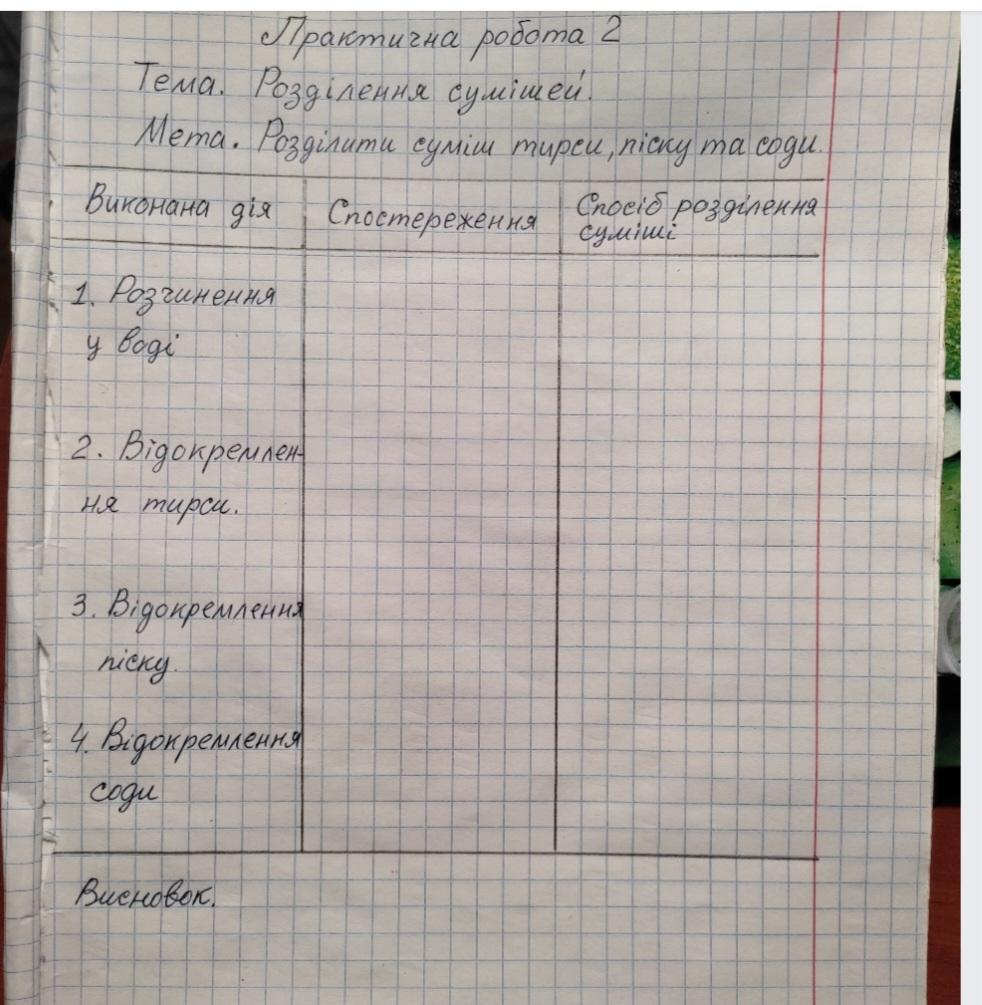 Практична робота 2
Тема. Розділення сумішей.
Мета. Розділити суміш тирси, піску та соди.
Виконана дія
Спостереження
Спосіб розділення
суміші
1. Розчинення
у воді
2. Відокремлен-
ня тирси.
3. Відокремлення
піску.
4. Відокремлення
соди
Висновок.